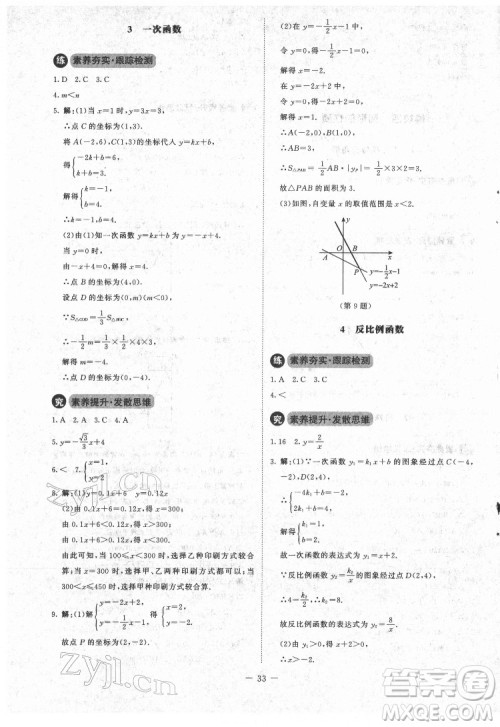 3 一次函数
练 素养夯实·跟踪检测
1. D 2. C 3. C
4. m<n
5. 解:(1)当 x=1 时, y=3x=3,
∴点 C 的坐标为(1,3).
将 A,C 的坐标代入 y=kx+b,
得{-2k+b=6, k+b=3.
解得{k=-1, b=4.
(2)由(1)知一次函数 y=-x+4.
当 y=0 时, x=4,
∴点 B 的坐标为(4,0).
设点 D 的坐标为(0,m)(m<0).
∵S△COD=1/3 S△BOC,
∴-1/2 m=1/3×1/2×4×3.
解得 m=-4.
∴点 D 的坐标为(0,-4).
究 素养提升·发散思维
1. A 2. A 3. C 4. A
5. y=-√3/3 x+4
6. < 7.
8. 解:(1)0.1x+6 0.12x
(2)由 0.1x+6<0.12x,得 x>300;
由 0.1x+6=0.12x,得 x=300;
由 0.1x+6>0.12x,得 x<300.
由此可知:当 300<x≤450 时,选择甲种印刷方式较合算;
当 x=300 时,选择甲、乙两种印刷方式都可以;当 100
≤x<300 时,选择乙种印刷方式较合算.
9. 解:(1)由{y=-2x+2,
得{x=2, y=-2.
故点 P 的坐标为(2,-2).
(2)当 y=0 时,
令 y=0,则-1/2 x-1=0,
解得 x=-2.
令 y=0,则-2x+2=0,
解得 x=1.
∴点 A(-2,0),点 B(1,0).
∴AB=3.
∴S△PAB=1/2 AB·|yP|=1/2×3×2=3.
故△PAB 的面积为 3.
(3)如图,自变量 x 的取值范围是 x<2.
y
A O B x
P y=-1/2x-1
y=-2x+2
(第 9 题)
4 反比例函数
练 素养夯实·跟踪检测
1. A 2. C 3. C
4. <
究 素养提升·发散思维
1. 16 2. y=2/x
3. 解:(1)∵一次函数 y1=k1x+b 的图象经过点 C(-4,
-2),D(2,4),
∴{-4k1+b=-2, 2k1+b=4.
解得{k1=1, b=2.
故一次函数的表达式为 y1=x+2.
∵反比例函数 y2=k2/x 的图象经过点 D(2,4),
∴4=k2/2.
∴k2=8.
故反比例函数的表达式为 y2=8/x.
(2)由 y1>0,得 x+2>0.
∴x>-2.
— 33 —
zyjl.cn
答案圈
MXQE.COM